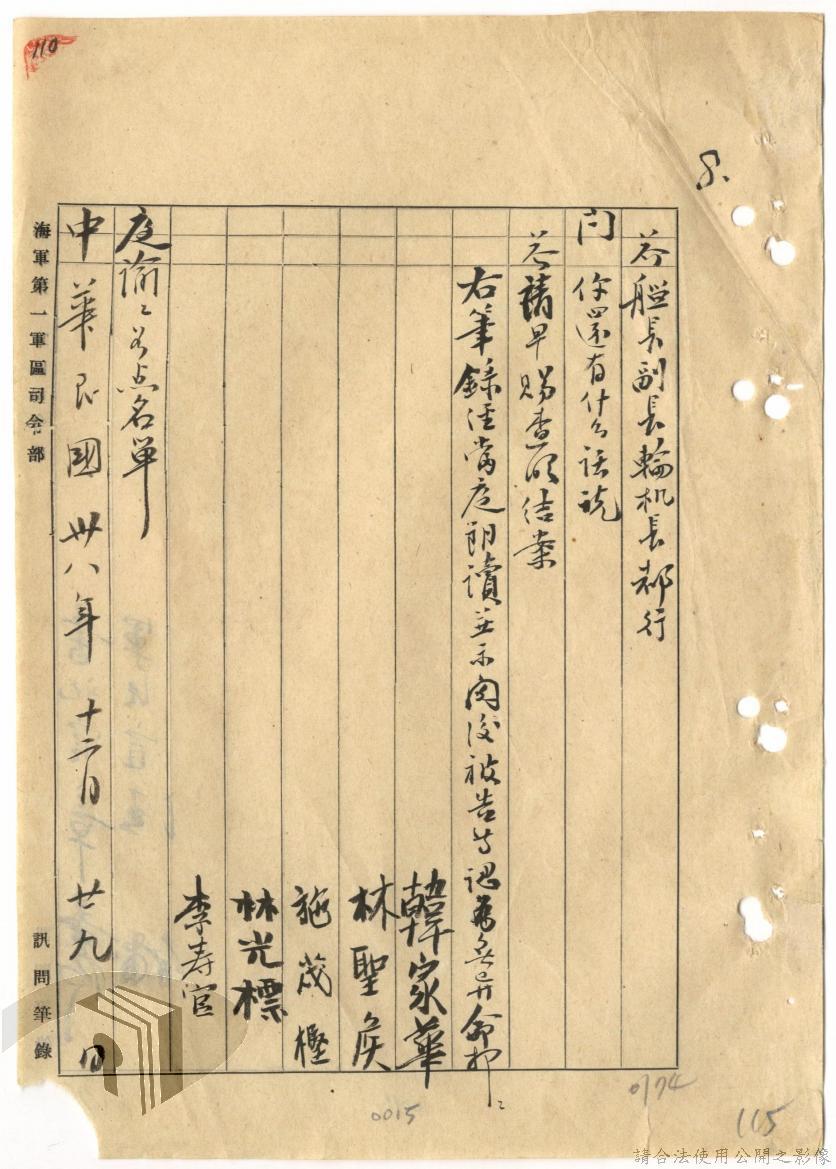 110
8.
答 艦長副長輪机長都行
问 你還有什么話說
答 請早賜查明結案
右筆錄经當庭朗讀並示閱後被告等認為無异命押
韓家華
林聖侯
施茂樫
林光標
李寿官
庭諭
点名單
中華民國卅八年十二月廿九日
海軍第一軍區司令部
訊問筆錄
0015
0174
115
請合法使用公開之影像